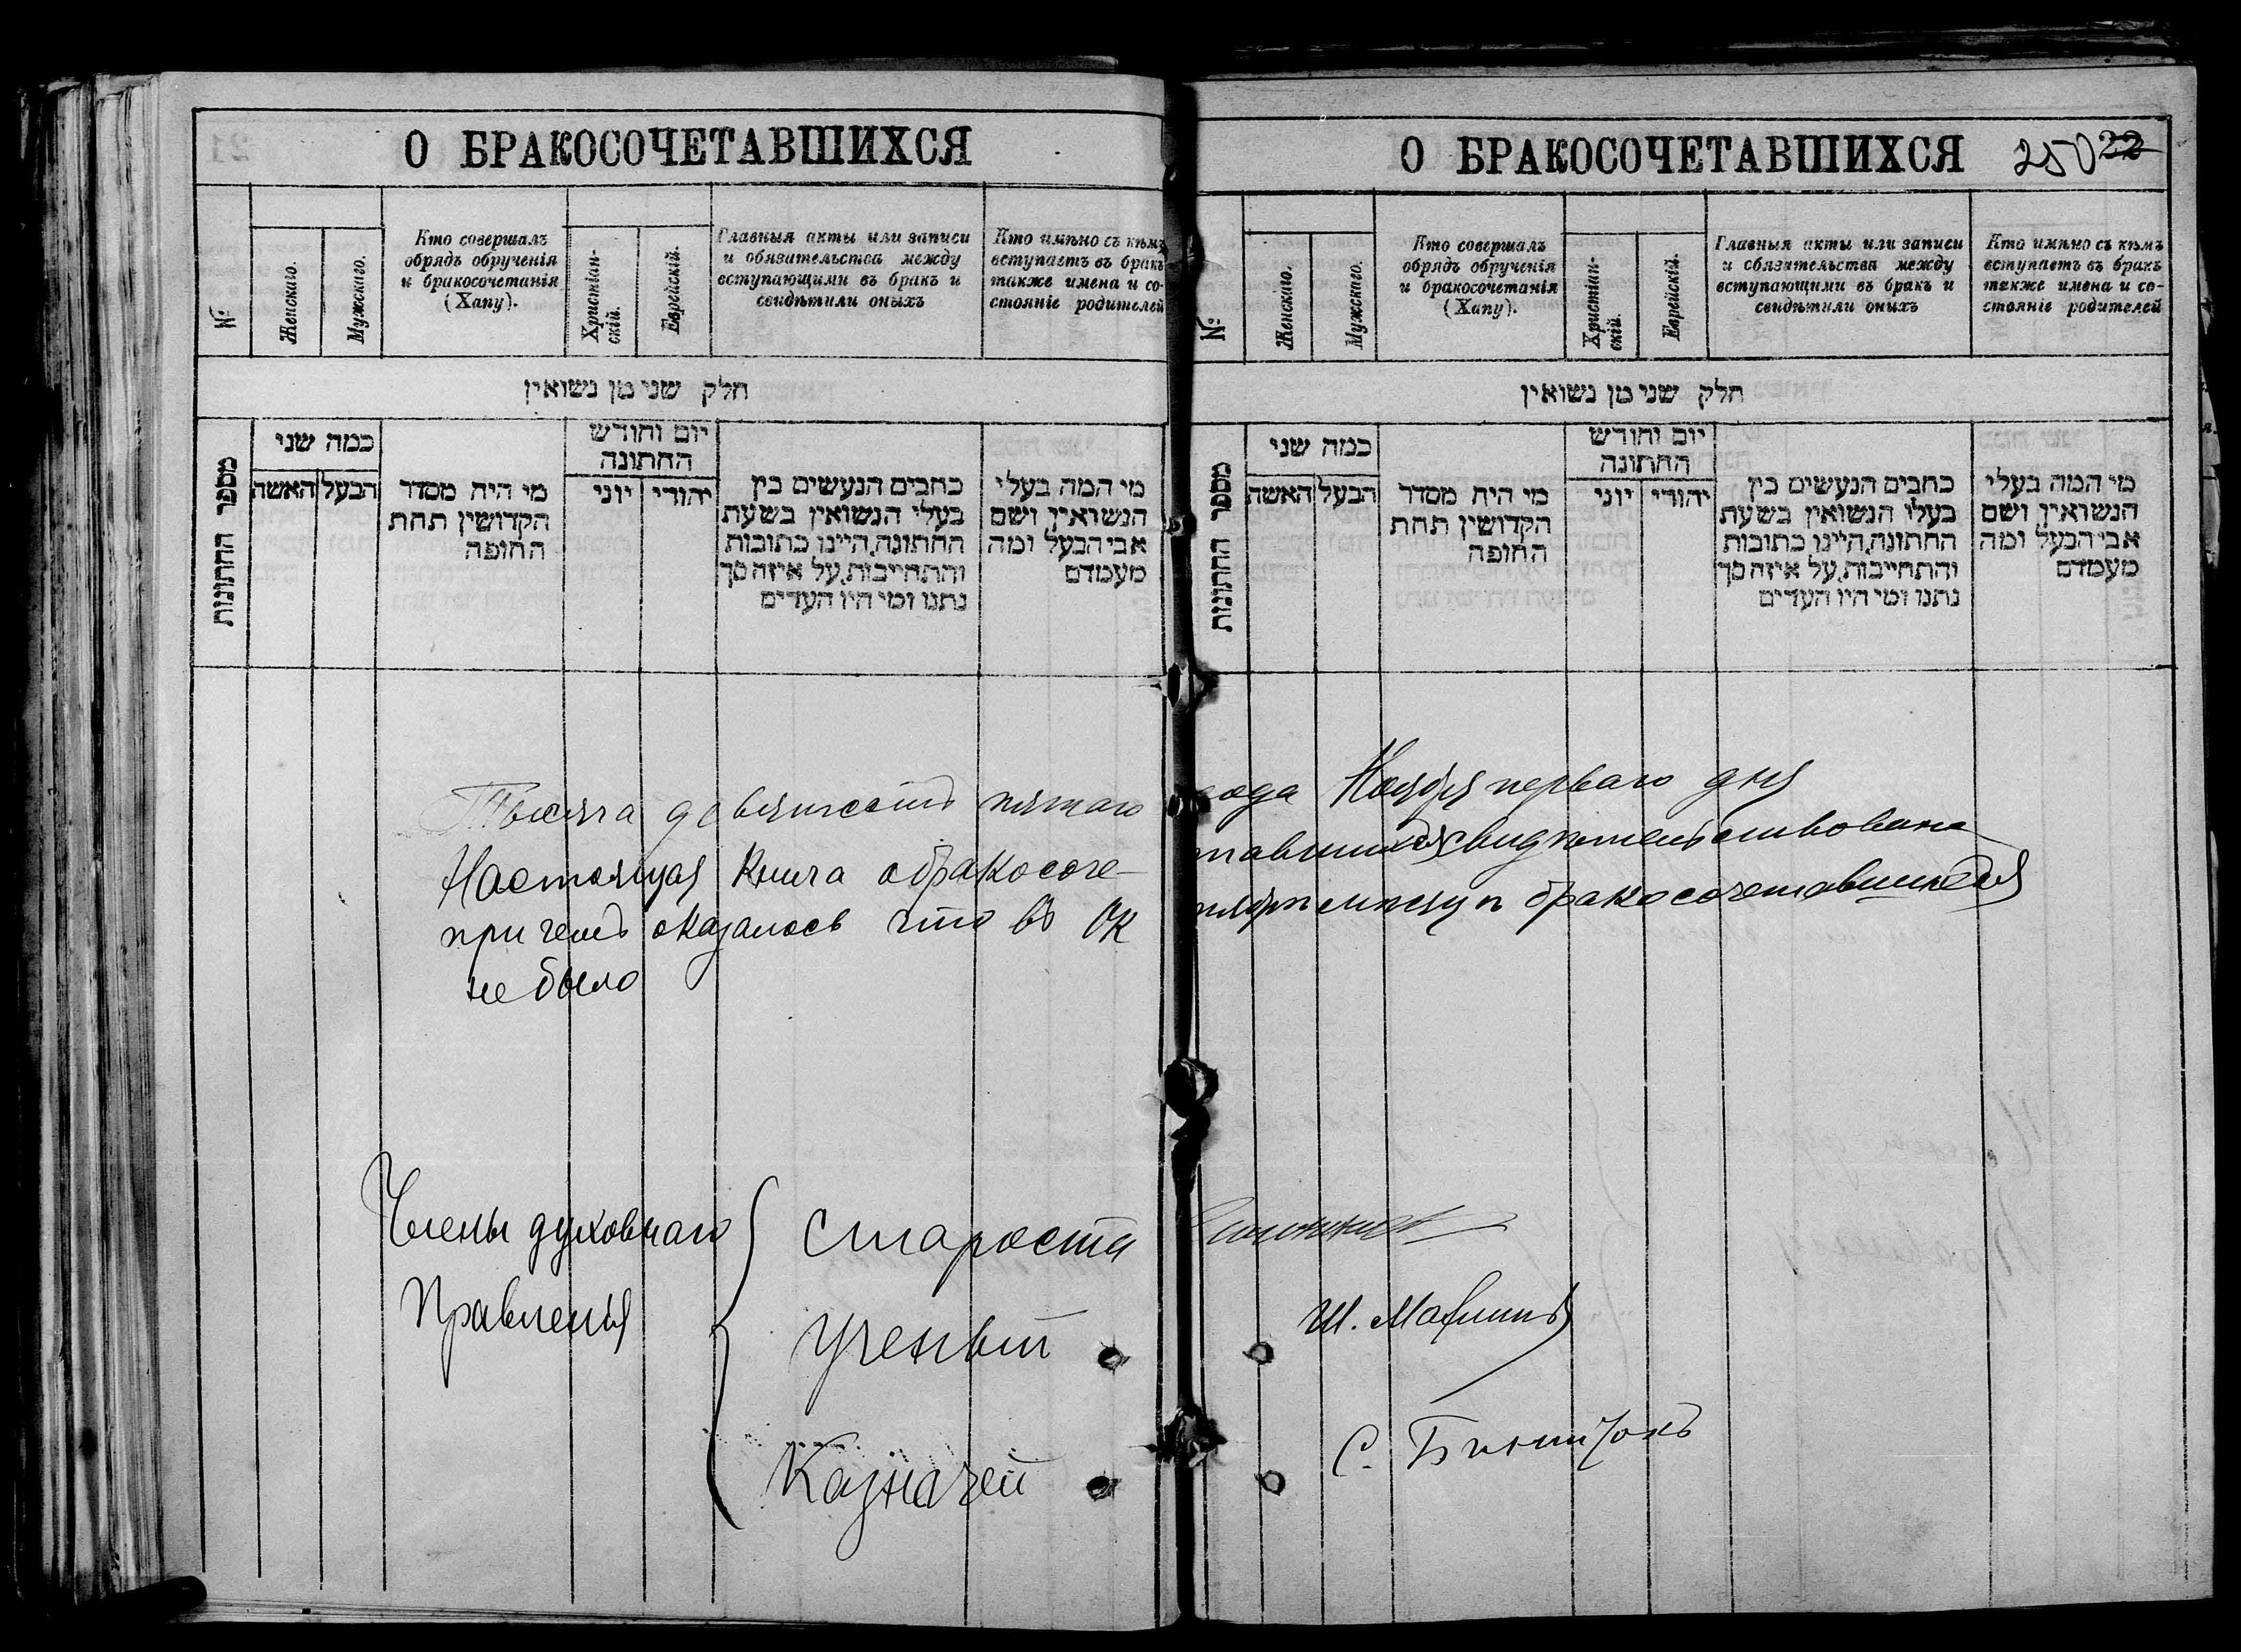 О БРАКОСОЧЕТАВШИХСЯ
№
Женскаго.
Мужскаго.
Кто совершалъ
обрядъ обрученія
и бракосочетанія
(Хапу).
Христіан-
скій.
Еврейскій.
Главныя акты или записи
и обязательства между
вступающими въ бракъ и
свидѣтили оныхъ
Кто имѣно съ кѣмъ
вступаетъ въ бракъ
также имена и со-
стояніе родителей
חלק שני מן נשואין
מספר החתונות
כמה שני
האשה
הבעל
מי היה מסדר
הקדושין תחת
החופה
יום וחודש
החתונה
יוני
יהודי
כתבים הנעשים בין
בעלי הנשואין בשעת
החתונה, היינו כתובות
והתחייבות, על איזה סך
נתנו ומי היו העדים
מי המה בעלי
הנשואין ושם
אבי הבעל ומה
מעמדם
О БРАКОСОЧЕТАВШИХСЯ 250 22
№
Женскаго.
Мужскаго.
Кто совершалъ
обрядъ обрученія
и бракосочетанія
(Хапу).
Христіан-
скій.
Еврейскій.
Главныя акты или записи
и обязательства между
вступающими въ бракъ и
свидѣтили оныхъ
Кто имѣно съ кѣмъ
вступаетъ въ бракъ
также имена и со-
стояніе родителей
חלק שני מן נשואין
מספר החתונות
כמה שני
האשה
הבעל
מי היה מסדר
הקדושין תחת
החופה
יום וחודש
החתונה
יוני
יהודי
כתבים הנעשים בין
בעלי הנשואין בשעת
החתונה, היינו כתובות
והתחייבות, על איזה סך
נתנו ומי היו העדים
מי המה בעלי
הנשואין ושם
אבי הבעל ומה
מעמדם
Тысяча девятьсотъ пятаго года Ноября перваго дня
Настоящая Книга о бракосоче-тавшихся свидѣтельствована
при чемъ оказалось что въ Октябрѣ мѣсяцѣ бракосочетавшихся
не было
Члены духовнаго
Правленія
Староста
Ученый
Ш.
Казначей
С.